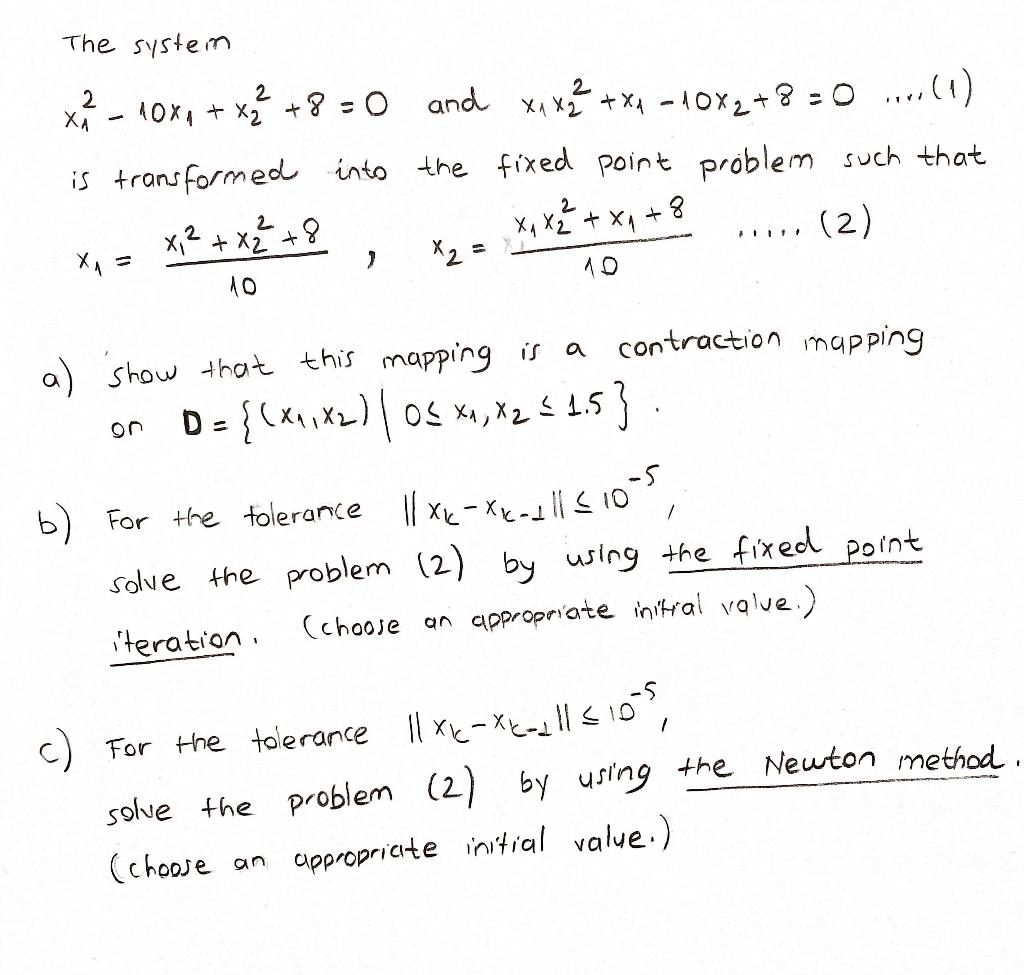 The system
x₁² - 10x₁ + x₂² + 8 = 0 and x₁x₂² + x₁ - 10x₂ + 8 = 0 ....(1)
is transformed into the fixed point problem such that
x₁ = (x₁² + x₂² + 8)/10 , x₂ = (x₁x₂² + x₁ + 8)/10 ..... (2)
a) show that this mapping is a contraction mapping
on D = {(x₁,x₂) | 0 ≤ x₁, x₂ ≤ 1.5} .
b) For the tolerance ||xₖ - xₖ₋₁|| ≤ 10⁻⁵ ,
solve the problem (2) by using the fixed point
iteration. (choose an appropriate initial value.)
c) For the tolerance ||xₖ - xₖ₋₁|| ≤ 10⁻⁵ ,
solve the problem (2) by using the Newton method.
(choose an appropriate initial value.)